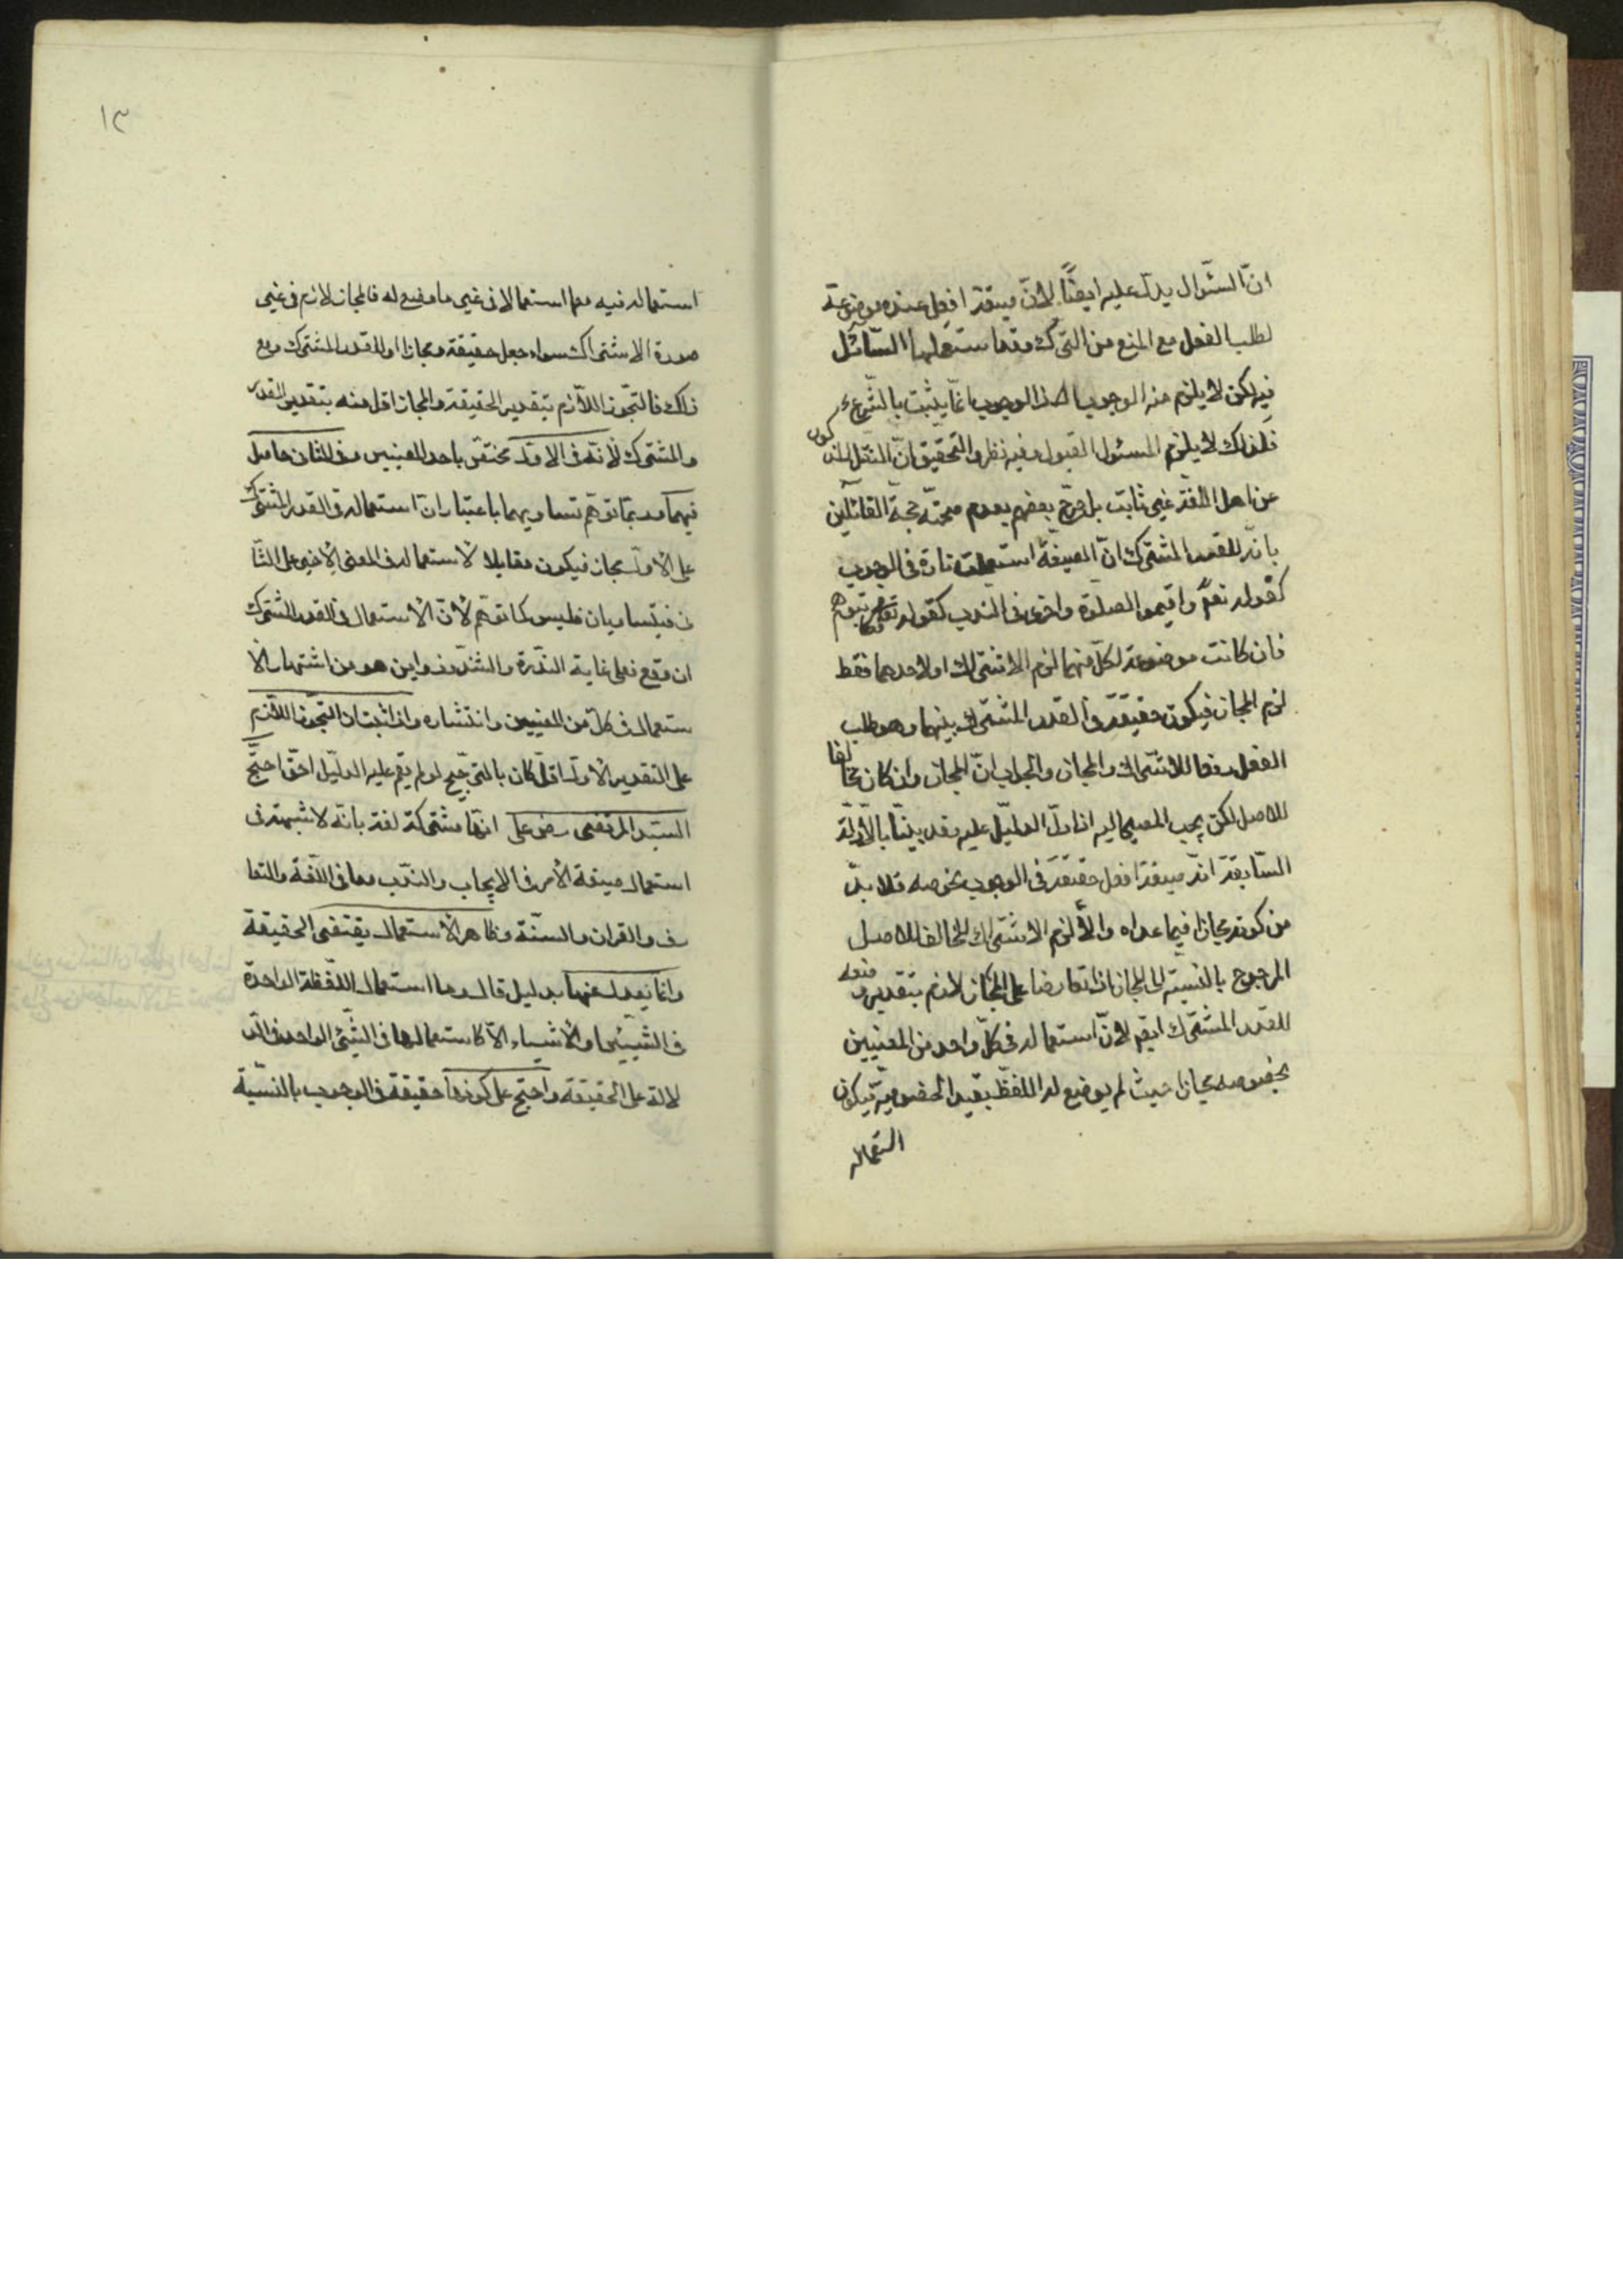 انّ السّؤال يدلّ عليه ايضًا لانّ صيغة افعل عنده موضوعة
لطلب الفعل مع المنع من الترك وقد استعملها السّائل
فيه لكن لا يلزم منه الوجوب اذ الوجوب انّما يثبت بالشّرع
فلذلك لا يلزم المسئول القبول وفيه نظر والتحقيق انّ النقل المذكور
عن اهل اللغة غير ثابت بل صرّح بعضهم بعدم صحّته حجة القائلين
بانّه للقدر المشترك انّ الصيغة استعملت تارة فى الوجوب
كقوله تعالى واقيموا الصلوة واخرى فى الندب كقوله تعالى فكاتبوهم
فان كانت موضوعة لكلّ منهما لزم الاشتراك او لاحدهما فقط
لزم المجاز فيكون حقيقة فى القدر المشترك بينهما وهو طلب
الفعل دفعا للاشتراك والمجاز والجواب انّ المجاز وان كان مخالفا
للاصل لكن يجب المصير اليه اذا دلّ الدليل عليه وقد بيّنّا بالادلّة
السّابقة انّ صيغة افعل حقيقة فى الوجوب بخوصه فلا بدّ
من كونه مجازا فيما عداه والّا لزم الاشتراك المخالف للاصل
المرجوح بالنسبة الى المجاز اذا تعارضا على انّ المجاز لازم بتقدير وضعه
للقدر المشترك ايضا لانّ استعماله فى كلّ واحد من المعنيين
بخصوصه مجاز حيث لم يوضع له اللفظ بقيد الخصوصيّة فيكون
استعماله
١٣
استعماله فيه معها استعمالا فى غير ما وضع له فالمجاز لازم فى غير
صورة الاشتراك سواء جعل حقيقة ومجازا او للقدر المشترك ومع
ذلك فالتجوّز اللازم بتقدير الحقيقة والمجاز اقل منه بتقدير القدر
المشترك لانّه فى الاوّل مختصّ باحد المعنيين وفى الثانى حاصل
فيهما وربّما توهّم تساويهما باعتبار انّ استعماله فى القدر المشترك
على الاوّل مجاز فيكون مقابلا لاستعماله فى المعنى الاخير على الثا
نى فيتساويان فليس كما توهّم لانّ الاستعمال فى القدر المشترك
ان وقع فعلى غاية النّدرة والشّذوذ واين هو من اشتهار الا
ستعمال فى كلّ من المعنيين وانتشاره واذا ثبت انّ التجوّز اللازم
على التقدير الاوّل اقلّ كان بالترجيح لو لم يقم عليه الدليل احقّ احتجّ
السيّد المرتضى رض على انّها مشتركة لغة بانّه لا شبهة فى
استعمال صيغة الأمر فى الايجاب والنّدب معا فى اللّغة والتعا
رف والقران والسّنّة وظاهر الاستعمال يقتضى الحقيقة
وانّما يعدل عنها بدليل قال وما استعمال اللّفظة الواحدة
فى الشّيئين او الأشياء الّا كاستعمالها فى الشّيئ الواحد فى الد
لالة على الحقيقة واحتج على كونها حقيقة فى الوجوب بالنّسبة